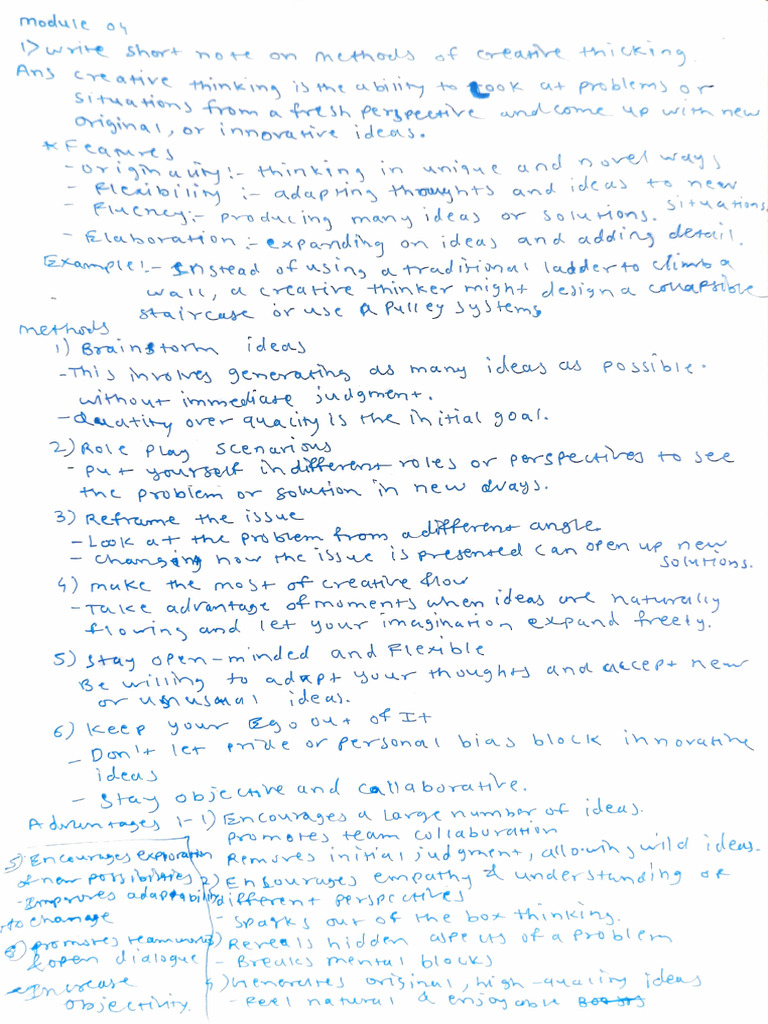 module 04
1) Write short note on methods of creative thicking.
Ans creative thinking is the ability to look at problems or
situations from a fresh perspective and come up with new
original, or innovative ideas.
* Features
- Originality :- thinking in unique and novel ways
- Flexibility :- adapting thoughts and ideas to new
situations.
- Fluency :- producing many ideas or solutions.
- Elaboration :- expanding on ideas and adding detail.
Example :- Instead of using a traditional ladder to climb a
wall, a creative thinker might design a collapsible
staircase or use a pulley systems
methods
1) Brainstorm ideas
- This involves generating as many ideas as possible.
without immediate judgment.
- Quatity over quality is the initial goal.
2) Role play scenarious
- put yourself in different roles or perspectives to see
the problem or solution in new ways.
3) Reframe the issue
- Look at the problem from a different angle.
- changing how the issue is presented can open up new
solutions.
4) make the most of creative flow
- Take advantage of moments when ideas are naturally
flowing and let your imagination expand freely.
5) Stay open-minded and Flexible
Be willing to adapt your thoughts and accept new
or unusual ideas.
6) Keep your Ego out of It
- Don't let pride or personal bias block innovative
ideas
- Stay objective and collaborative.
Advantages :- 1) Encourages a large number of ideas.
promotes team collaboration
Removes initial judgment, allowing wild ideas.
2) Ensourages empathy & understanding of
different perspectives
- Sparks out of the box thinking.
3) Reveals hidden aspects of a problem
- Breaks mental blocks
Generates original, high-quality ideas
- Feel natural & enjoyable
5) Encourages exploration
of new possibilities
- Improves adaptability
to change
6) promotes teamwork
& open dialogue
- Increase
objectivity.